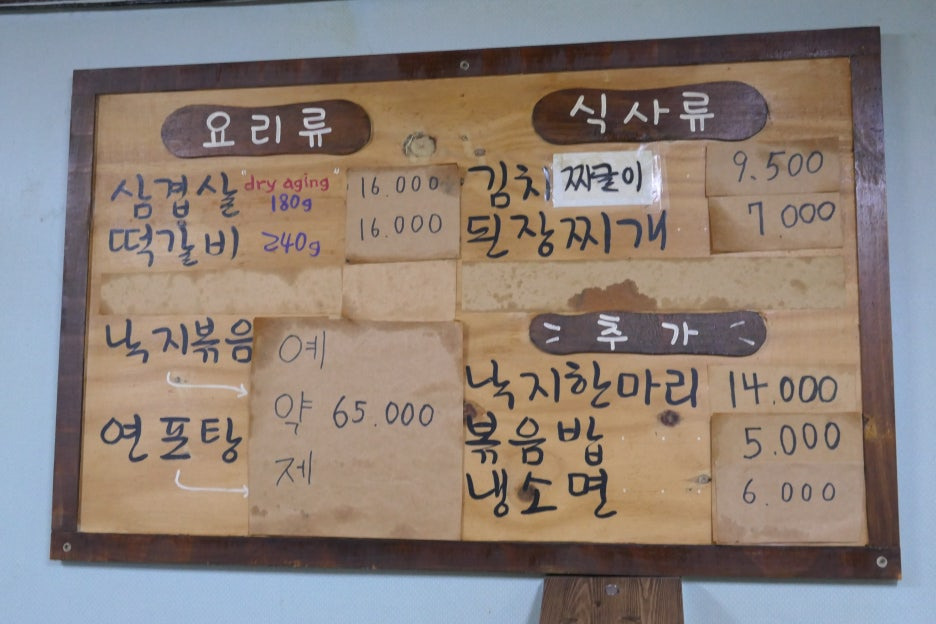 요리류
삼겹살 "dry aging" 180g 16.000
떡갈비 240g 16.000
낙지볶음
연포탕
예약제 65.000
식사류
김치짜글이 9.500
된장찌개 7.000
추가
낙지한마리 14.000
볶음밥 5.000
냉소면 6.000